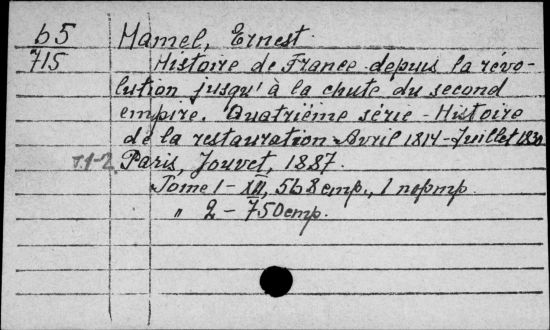 65 Hamel, Ernest.
715 Histoire de France depuis la révo-
lution jusqu'à la chute du second
empire. Quatriéme série - Histoire
de la restauration Avril 1814-Juillet 1830
т.1-2. Paris, Jouvet, 1887.
Tome 1 - XII, 568 стр., 1 портр.
" 2 - 750 стр.